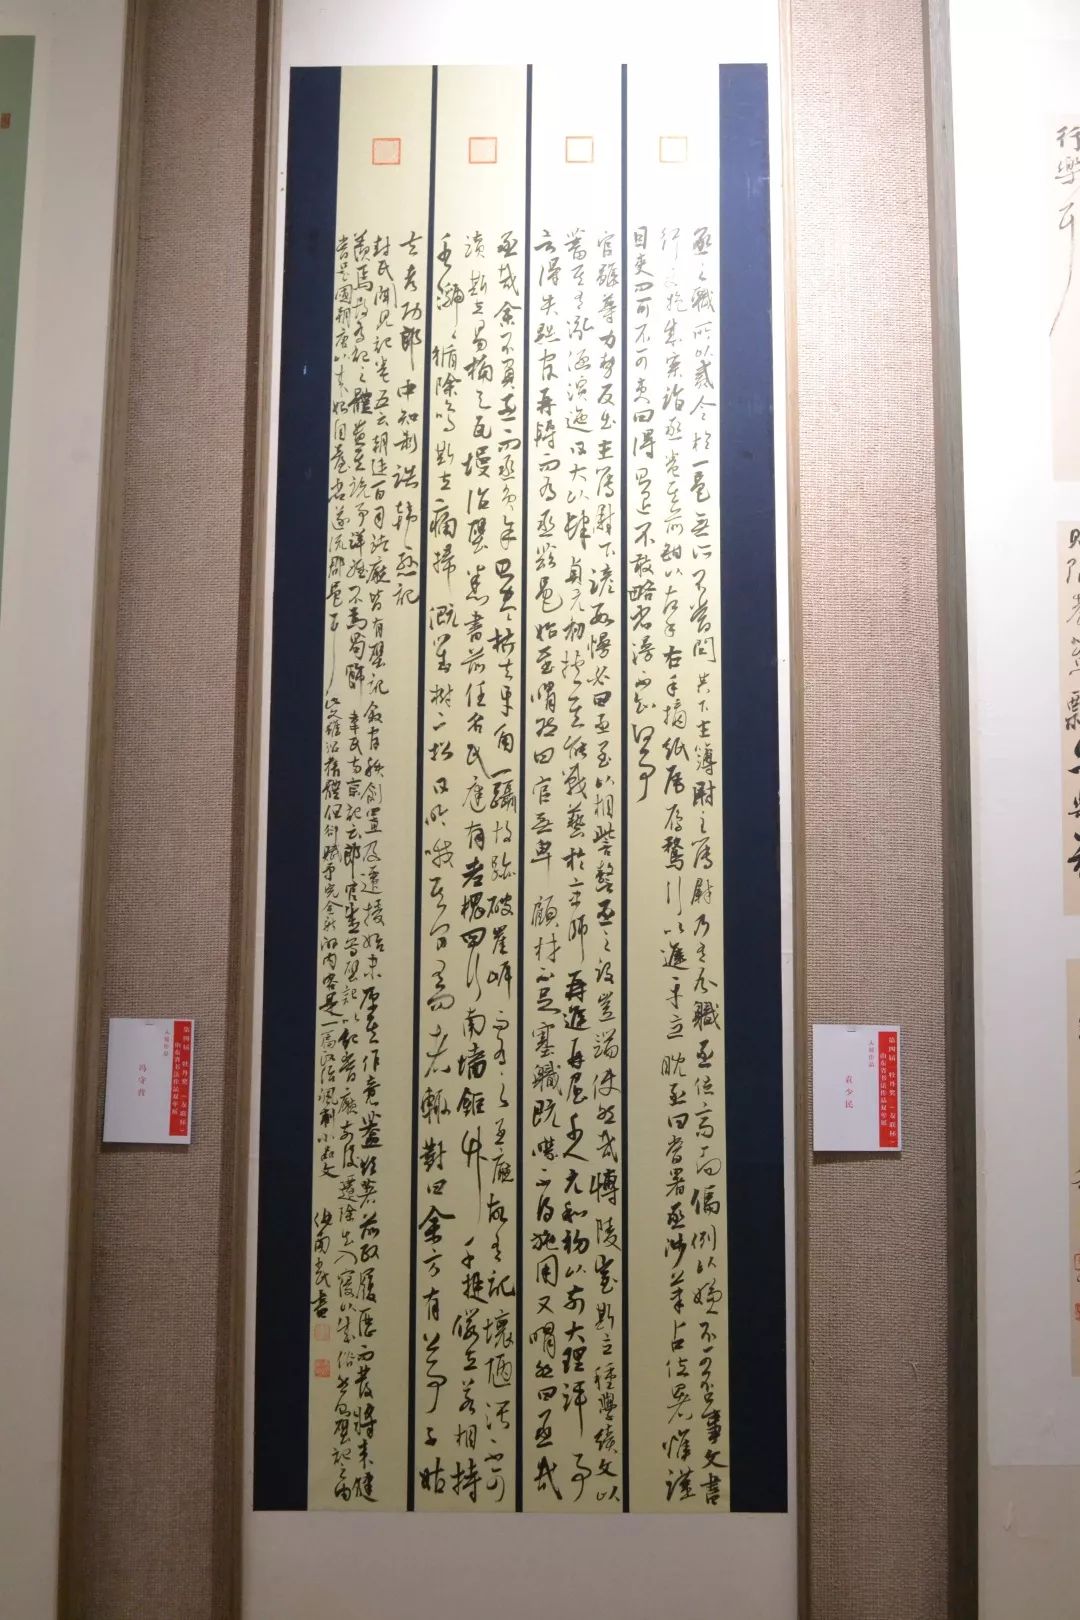 丞之職所以貳令於一邑無所不當問其下主簿尉主簿尉乃有分職丞位高而偪例以嫌不可否事文書
行吏抱成案詣丞卷其前鉗以左手右手摘紙尾雁鶩行以進平立睨丞曰當署丞涉筆占位署惟謹
目吏問可不可吏曰得則退不敢略省漫不知何事
官雖尊力勢反出主簿尉下諺數慢必曰丞至以相訾謷丞之設豈端使然哉博陵崔斯立種學績文以
蓄其有泓涵演迤日大以肆貞元初挾其能戰藝於京師再進再屈千人元和初以前大理評事
言得失黜官再轉而為丞茲邑始至喟然曰官無卑顧材不足塞職既噤不得施用又喟然曰丞哉
丞哉余不負丞而丞負余則盡枿去牙角一躡故跡破崖岸而為之丞廳故有記壞陋污不可
讀斯立易桷與瓦墁治壁悉書前任名氏庭有老槐四行南墻鉅竹千挺儼立若相持
水㶁㶁循除鳴斯立痛掃溉對樹二松日吟哦其間有問者輒對曰余方有公事子姑
去考功郎中知制誥韓愈記
封氏聞見記卷五云朝廷百司諸廳皆有壁記敘官秩創置及遷授始末原其作意蓋欲著前政履歷而發將來健
羨焉故為記之體貴其說事詳雅不為苟飾 韋氏兩京記云郎官盛寫壁記以紀當廳前後遷除出入寖以成俗然則壁記之由
當是國朝以來始自臺省遂流郡邑耳 此文雖沿舊體但卻賦予完全新的內容是一篇政治諷刺小品文
第四届 牡丹奖（友联杯）
山东省书法作品双年展
入展作品
袁少民
第四届 牡丹奖（友联杯）
山东省书法作品双年展
入展作品
冯守背
行樂